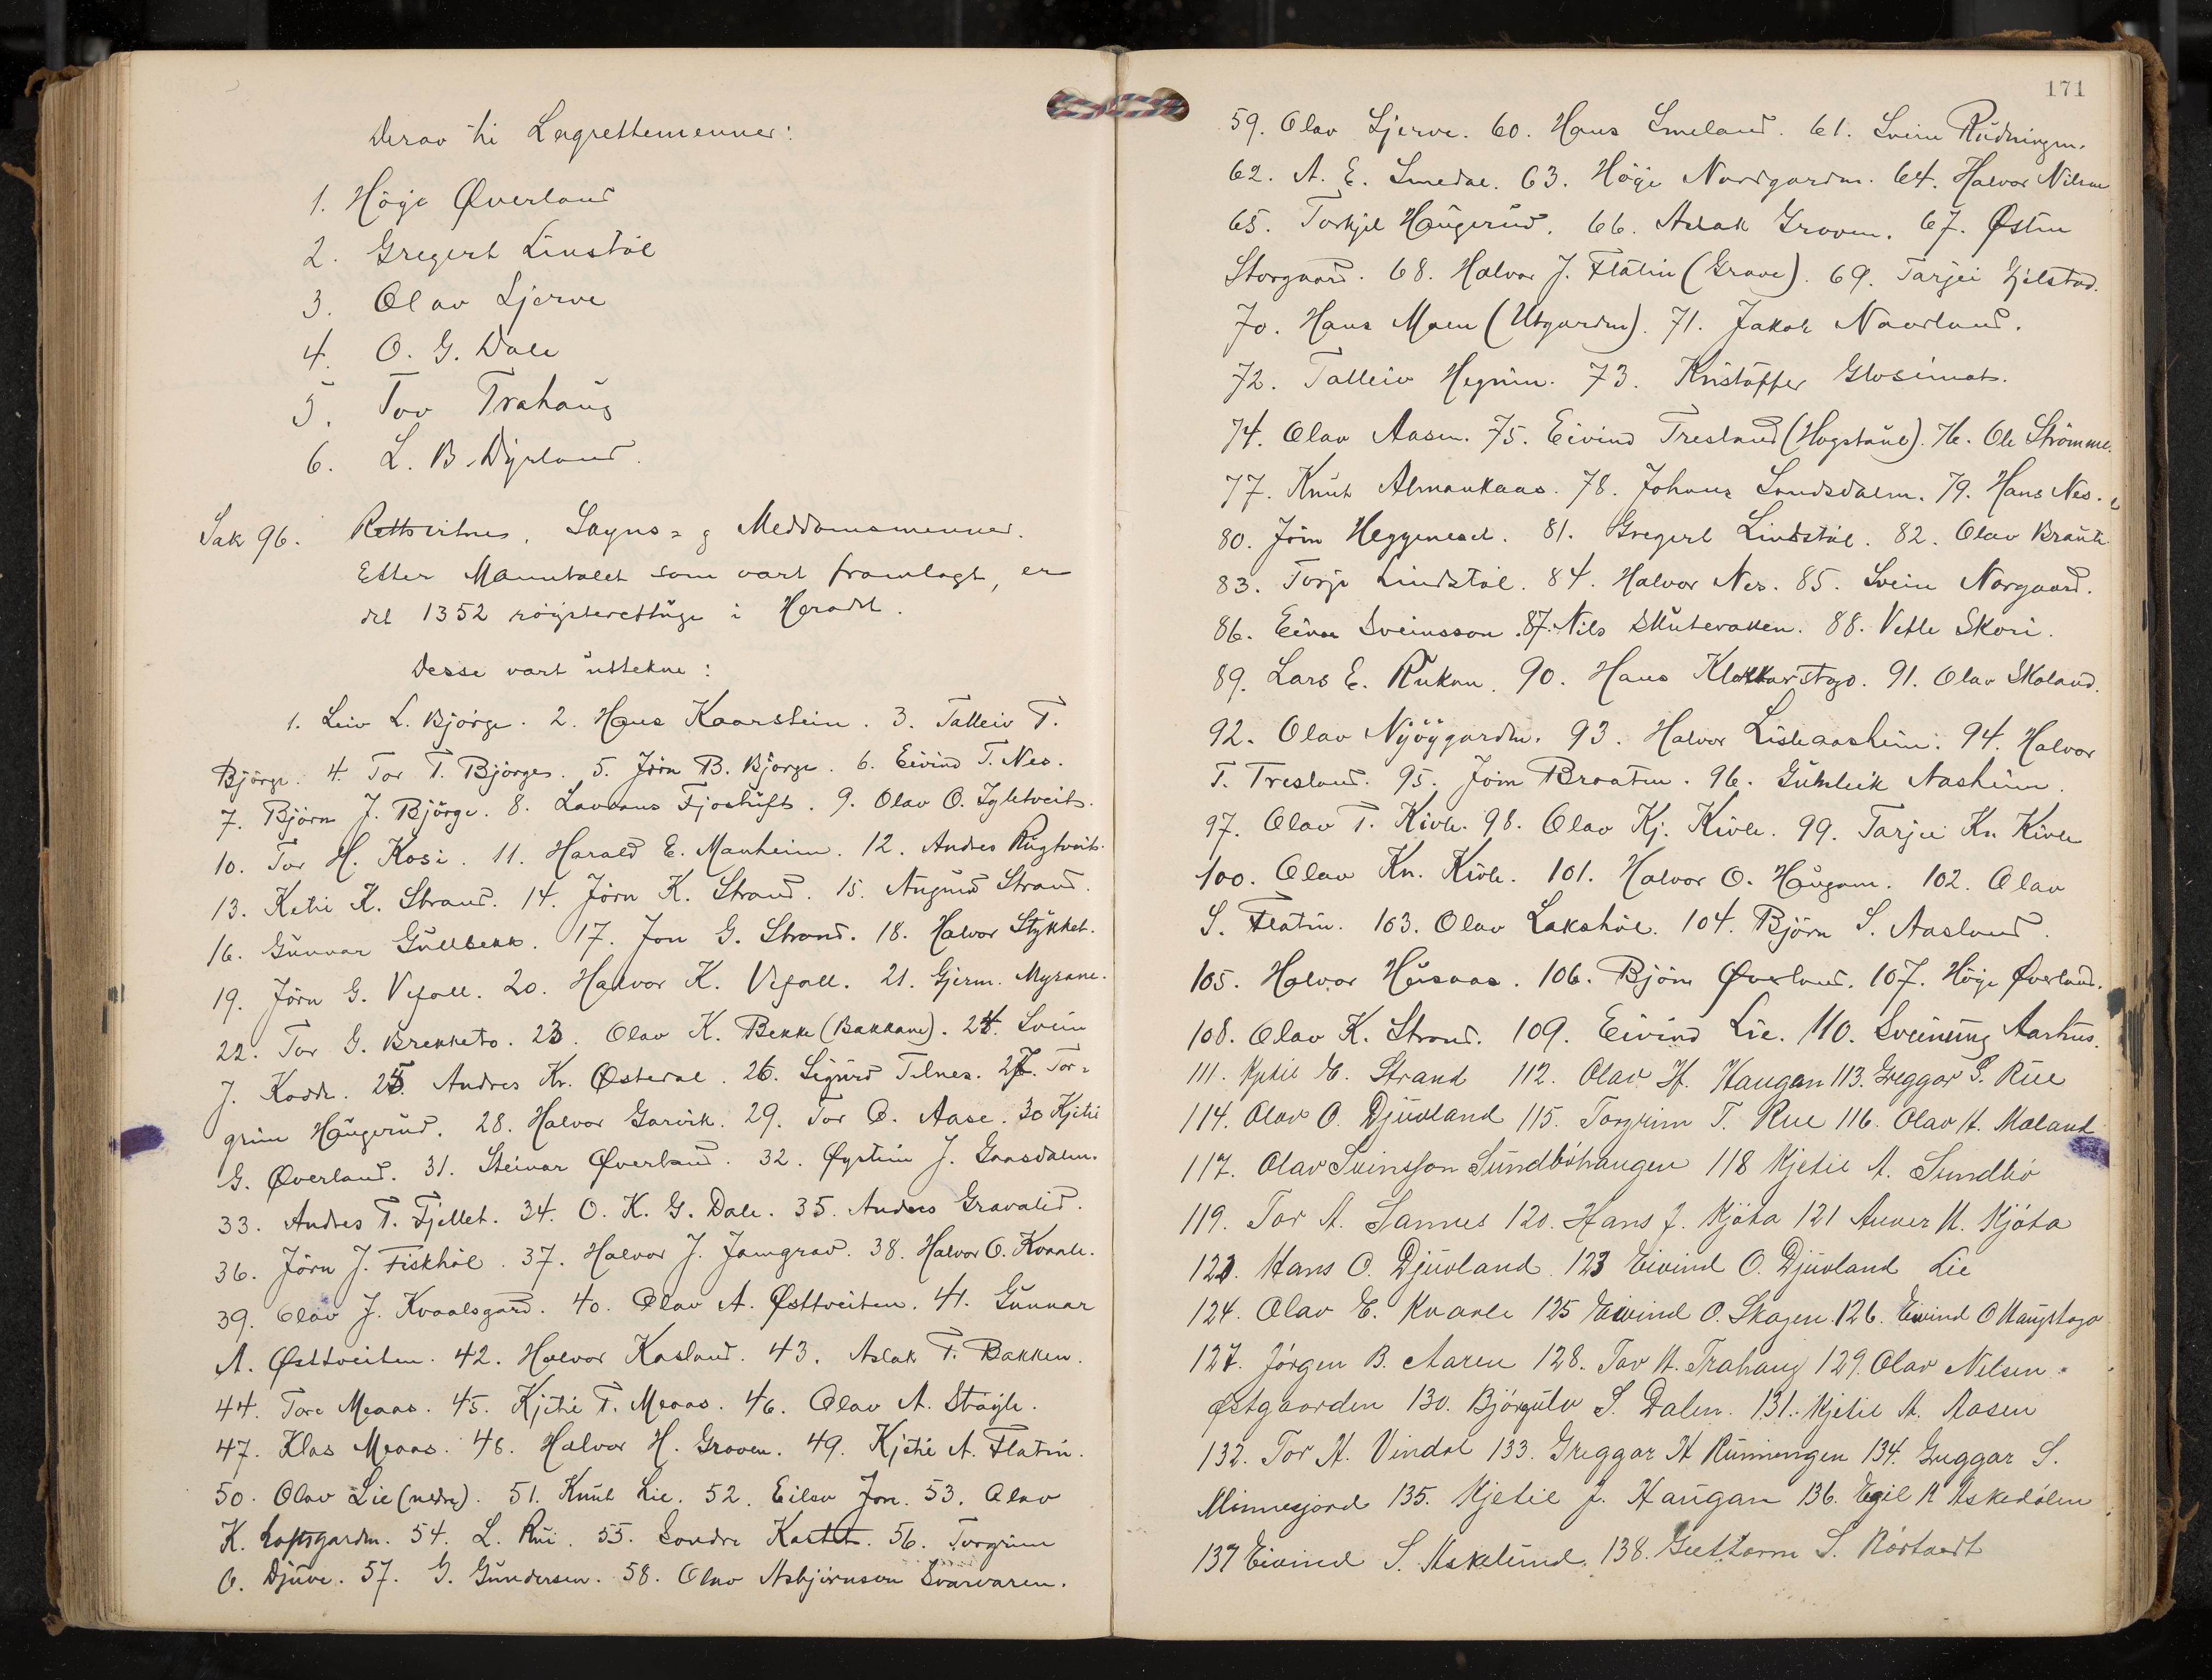 Derav til Lagrettemenner:
1. Höge Øverland
2. Gregert Linstöl
3. Olav Ljerve
4. O. G. Dale
5. Tov Trahaug
6. L. B. Dyrland.
Sak 96. Rettsvitnes, Sagns= g Meddomsmenner.
Etter Manntalet som vart framlagt, er
det 1352 röysterettuge i Heradet.
Desse vart uttekne:
1. Leiv L. Björge. 2. Hans Kaarstein. 3. Talleiv T.
Björge. 4. Tor T. Björges. 5. Jörn B. Björge. 6. Eivind T. Nes.
7. Björn J. Björge. 8. Lavrans Fjostuft. 9. Olav O. Igletveit.
10. Tor H. Kosi. 11. Harald E. Manheim. 12. Andres Rugtveit.
13. Ketil K. Strand. 14. Jörn K. Strand. 15. Augund Strand.
16. Gunnar Gullbekk. 17. Jon G. Strand. 18. Halvor Stykket.
19. Jörn G. Vefall. 20. Halvor K. Vefall. 21. Gjerm. Myrane.
22. Tor G. Brekketo. 23. Olav K. Bekk (Bakkane). 24. Svein
J. 25. Andres Kr. Østerdal. 26. Sigurd Tilnes. 27. Tor=
grim Haugerud. 28. Halvor Garvik. 29. Tor O. Aase. 30 Kjetil
G. Øverland. 31. Steinar Øverland. 32. Øystein J. Gaasdalen.
33. Andres T. Fjellet. 34. O. K. G. Dale. 35. Andres Gravalid.
36. Jörn J. Fiskhöl. 37. Halvor J. Jamgrav. 38. Halvor O. Kvaale.
39. Olav J. Kvaalsgard. 40. Olav A. Østtveiten. 41. Gunnar
A. Østtveiten. 42. Halvor Kasland. 43. Aslak T. Bakken.
44. Tore Meaas. 45. Kjetil T. Meaas. 46. Olav A. Ståyle.
47. Klas Meaas. 48. Halvor H. Groven. 49. Kjetil A. Flatin.
50. Olav Lie (nedre). 51. Knut Lie. 52. Eilev Jore. 53. Olav
K. Loftsgarden. 54. L. Rui. 55. Sondre Kastet. 56. Torgrim
O. Djuve. 57. G. Gundersen. 58. Olav Asbjörnson Svarvaren.
171
59. Olav Ljerve. 60. Hans Smeland. 61. Svein Rudningen.
62. A. E. Smedal. 63. Höge Nordgarden. 64. Halvor Nilsen
65. Torkjel Haugerud. 66. Aslak Groven. 67. Østen
Storgaard. 68. Halvor J. Flatin (Grave). 69. Tarjei Gjelstad.
70. Hans Moen (Utgarden). 71. Jakob Naurland.
72. Talleiv Hegnin. 73. Kristoffer Glosimot.
74. Olav Aasen. 75. Eivind Tresland (Hogstaul). 76. Ole Strömme.
77. Knut Almankaas. 78. Johans Sundsdalen. 79. Hans Nes.
80. Jörn Heggeneset. 81. Gregert Lindstöl. 82. Olav Braute
83. Torje Lindstöl. 84. Halvor Nes. 85. Svein Norgaard.
86. Einar Sveinsson. 87. Nils Skutevakken. 88. Vetle Skori.
89. Lars E. Rukan. 90. Hans Klokkarstogo. 91. Olav Moland.
92. Olav Nyöygarden. 93. Halvor Lislaasheim. 94. Halvor
T. Tresland. 95. Jörn Braaten. 96. Gunleik Aasheim.
97. Olav T. Kivle. 98. Olav Kj. Kivle. 99. Tarjei Kn. Kivle
100. Olav Kn. Kivle. 101. Halvor O. Haugann. 102. Olav
S. Flatin. 103. Olav Lakshöl. 104. Björn S. Aasland.
105. Halvor Husaas. 106. Björn Øverland. 107. Höge Øverland.
108. Olav K. Strand. 109. Eivind Lie. 110. Sveinung Aarhus.
111. Kjetil E. Strand 112. Olav H. Haugan 113. Greggar S. Rue
114. Olav O. Djuvland 115. Torgrim T. Rue 116. Olav H. Mæland
117. Olav Sveinsson Sundböhaugen 118 Kjetil A. Sundbö
119. Tor A. Sannes 120. Hans J. Kjöta 121 Anver H. Kjöta
122. Hans O. Djuvland. 123 Eivind O. Djuvland Lie
124. Olav E. Kvaale 125 Eivind O. Skogen. 126. Eivind O Haugstogo
127. Jörgen B. Aaren 128. Tov H. Trahaug 129. Olav Nelsen
Østgaarden 130. Björgulv S. Dalen. 131. Kjetil A. Aasen
132. Tor H. Vindal 133. Greggar H Runningen 134. Greggar S.
Minnesjord 135. Kjetil J. Haugan 136. Egil A Askedalen
137 Eivind S. Askelund. 138. Guttorm S. Rörtvedt